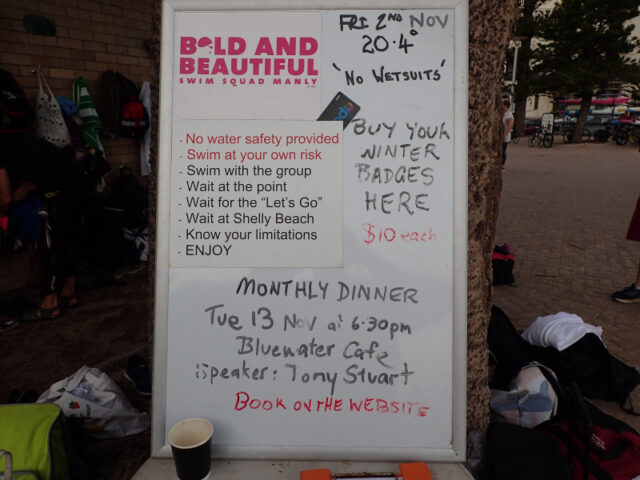 BOLD AND
BEAUTIFUL
SWIM SQUAD MANLY
FRI 2ND NOV
20.4°
'NO WETSUITS'
- No water safety provided
- Swim at your own risk
- Swim with the group
- Wait at the point
- Wait for the "Let's Go"
- Wait at Shelly Beach
- Know your limitations
- ENJOY
BUY YOUR
WINTER
BADGES
HERE
$10 each
MONTHLY DINNER
Tue 13 Nov at 6.30pm
Bluewater Cafe
Speaker: Tony Stuart
BOOK ON THE WEBSITE